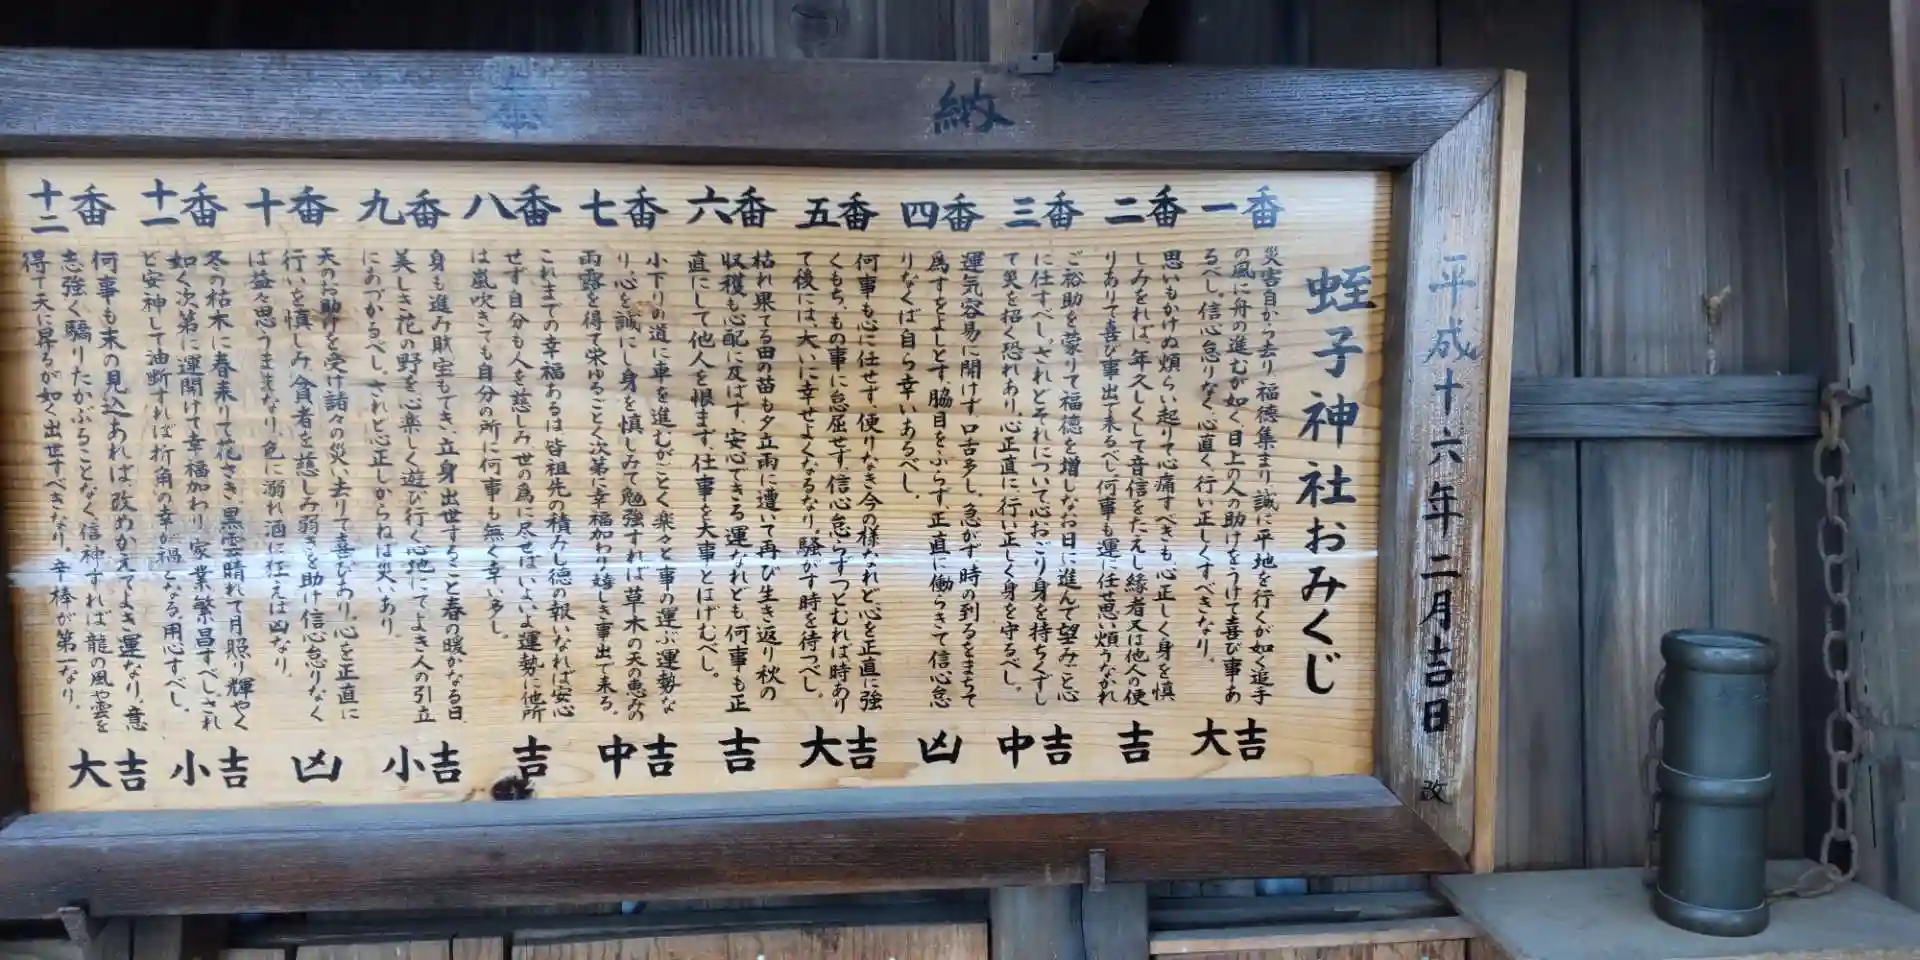 奉納
平成十六年二月吉日 改
蛭子神社おみくじ
一番
災害自から去り、福徳集まり、誠に平地を行くが如く追手
の風に舟の進むが如く目上の人の助けをうけて喜び事あ
るべし。信心怠りなく、心直く行い正しくすべきなり。
大吉
二番
思いもかけぬ煩らい起りて心痛すべきも心正しく身を慎
しみをれば、年久しくして音信をたえし縁者又は他人の便
りありて喜び事出て来るべし、何事も運に任せ思い煩うなかれ
吉
三番
ご裕助を蒙りて福徳を増しなお日に進んで望みごと心
に任すべし。されどそれについて心おごり身を持ちくずし
て災を招く恐れあり、心正直に行い正しく身を守るべし。
中吉
四番
運気容易に開けず、口舌多し。急がず時の到るをまちて
為すをよしとす、脇目をふらず、正直に働らきて信心怠
りなくば自ら幸いあるべし。
凶
五番
何事も心に任せず、便りなき今の様なれど心を正直に強
くもち、もの事に怠屈せず、信心怠らずつとむれば時あり
て後には、大いに幸せよくなるなり。騒がす時を待つべし。
大吉
六番
枯れ果てる田の苗も夕立雨に遭いて再び生き返り秋の
収穫も心配に及ばず、安心できる運なれども何事も正
直にして他人を恨ます、仕事を大事とはげむべし。
吉
七番
小下りの道に車を進むがごとく楽々と事の運ぶ運勢な
り、心を誠にし身を慎しみて勉強すれば草木の天の恵みの
雨露を得て栄ゆるごとく次第に幸福加わり嬉しき事出て来る。
中吉
八番
これまでの幸福あるは皆祖先の積みし徳の報いなれば安心
せず、自分も人を慈しみ世の為に尽せばいよいよ運勢に他所
は嵐吹きても自分の所に何事も無く幸い多し。
吉
九番
身も進み財宝もでき、立身出世すること春の暖かなる日、
美しき花の野を心楽しく遊び行く心地にてよき人の引立
にあづかるべし。されど心正しからねば災いあり。
小吉
十番
天のお助けを受け諸々の災い去りて喜びあり。心を正直に
行いを慎しみ、貧者を慈しみ弱きを助け信心怠りなく
は益々思うままなり、色に溺れ酒に狂えは凶なり。
凶
十一番
冬の枯木に春来りて花さき、黒雲晴れて月照り輝やく
如く次第に運開けて幸福加わり、家業繁昌すべし。され
ど安神して油断すれば折角の幸が禍となる、用心すべし。
小吉
十二番
何事も末の見込あれば、改めかえてよき運なり、意
志強く驕りたかぶることなく信神すれば龍の風や雲を
得て天に昇るが如く出世すべきなり、辛棒が第一なり。
大吉